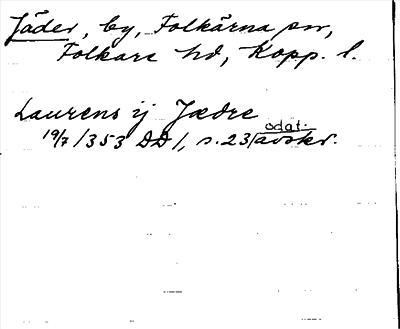 Jäder, by, Folkärna sn,
Folkare hd, Kopp. l.
Laurens ij Jædre
odat.
19/7 1353 DD 1, s. 23, avskr.